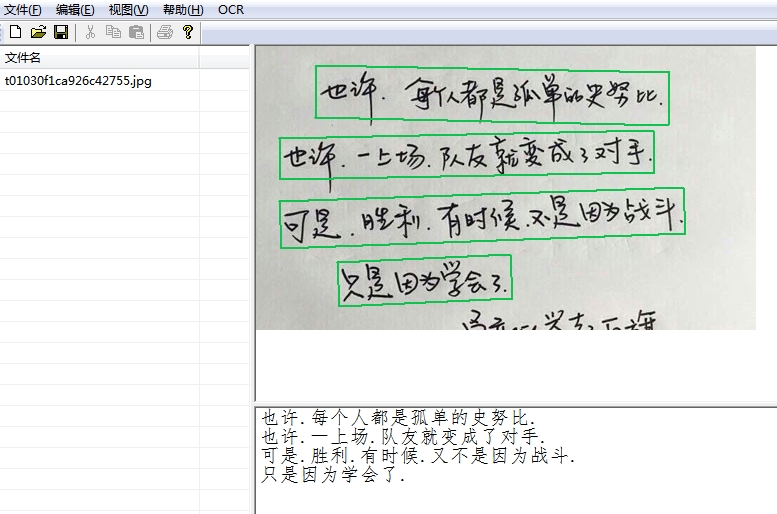 文件(F) 编辑(E) 视图(V) 帮助(H) OCR
文件名
t01030f1ca926c42755.jpg
也许.每个人都是孤单的史努比.
也许.一上场.队友就变成了对手.
可是.胜利.有时候.不是因为战斗.
只是因为学会了.
也许.每个人都是孤单的史努比.
也许.一上场.队友就变成了对手.
可是.胜利.有时候.又不是因为战斗.
只是因为学会了.